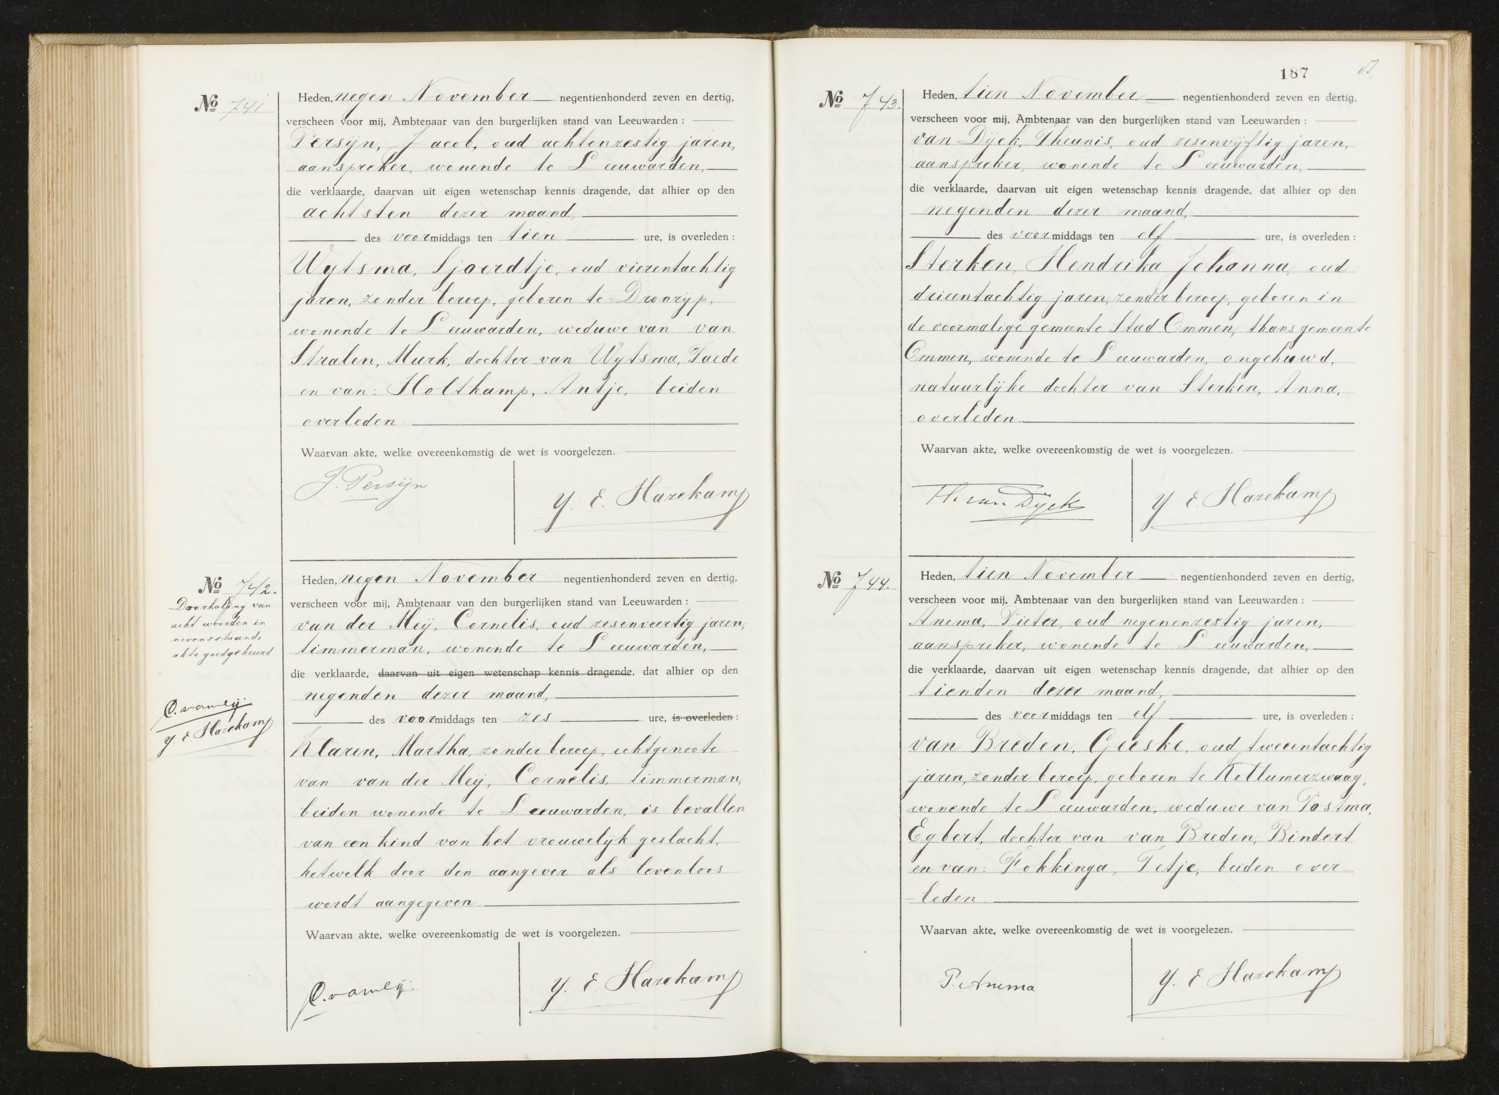 No 741
Heden, negen November negentienhonderd zeven en dertig,
verscheen voor mij, Ambtenaar van den burgerlijken stand van Leeuwarden :
Persijn, Jacob, oud achtenzestig jaren,
aanspreker, wonende te Leeuwarden,
die verklaarde, daarvan uit eigen wetenschap kennis dragende, dat alhier op den
achtsten dezer maand,
des voormiddags ten tien ure, is overleden :
Wytsma, Sjoerdtje, oud vierentachtig
jaren, zonder beroep, geboren te Dronrijp,
wonende te Leeuwarden, weduwe van van
Stralen, Murk, dochter van Wytsma, Taede
en van: Holtkamp, Antje, beiden
overleden
Waarvan akte, welke overeenkomstig de wet is voorgelezen.
J. Persijn
Y. E. Harekamp
No 742.
Doorhaling van
acht woorden in
nevenstaande
akte goedgekeurd
C. v.d. Meij
Y E Harekamp
Heden, negen November negentienhonderd zeven en dertig,
verscheen voor mij, Ambtenaar van den burgerlijken stand van Leeuwarden :
van der Meij, Cornelis, oud zesenveertig jaren,
timmerman, wonende te Leeuwarden,
die verklaarde, daarvan uit eigen wetenschap kennis dragende, dat alhier op den
negenden dezer maand,
des voormiddags ten zes ure, is overleden :
Klaren, Martha, zonder beroep, echtgenoote
van van der Meij, Cornelis, timmerman,
beiden wonende te Leeuwarden, is bevallen
van een kind van het vrouwelijk geslacht,
hetwelk door den aangever als levenloos
wordt aangegeven
Waarvan akte, welke overeenkomstig de wet is voorgelezen.
C. v.d. Meij
Y. E Harekamp
187
No 743.
Heden, tien November negentienhonderd zeven en dertig,
verscheen voor mij, Ambtenaar van den burgerlijken stand van Leeuwarden :
van Dijck, Theunis, oud zesenvijftig jaren,
aanspreker, wonende te Leeuwarden,
die verklaarde, daarvan uit eigen wetenschap kennis dragende, dat alhier op den
negenden dezer maand,
des voormiddags ten elf ure, is overleden :
Sterken, Hendrika Johanna, oud
drieentachtig jaren, zonder beroep, geboren in
de voormalige gemeente Stad Ommen, thans gemeente
Ommen, wonende te Leeuwarden, ongehuwd,
natuurlijke dochter van Sterken, Anna,
overleden
Waarvan akte, welke overeenkomstig de wet is voorgelezen.
Th. van Dijck
Y E Harekamp
No 744.
Heden, tien November negentienhonderd zeven en dertig,
verscheen voor mij, Ambtenaar van den burgerlijken stand van Leeuwarden :
Anema, Pieter, oud negenenzestig jaren,
aanspreker, wonende te Leeuwarden,
die verklaarde, daarvan uit eigen wetenschap kennis dragende, dat alhier op den
tienden dezer maand,
des voormiddags ten elf ure, is overleden :
van Breden, Geeske, oud tweeentachtig
jaren, zonder beroep, geboren te Kollumerzwaag,
wonende te Leeuwarden, weduwe van Postma,
Egbert, dochter van van Breden, Bindert
en van: Fokkinga, Tetje, beiden over
leden
Waarvan akte, welke overeenkomstig de wet is voorgelezen.
P. Anema
Y. E Harekamp